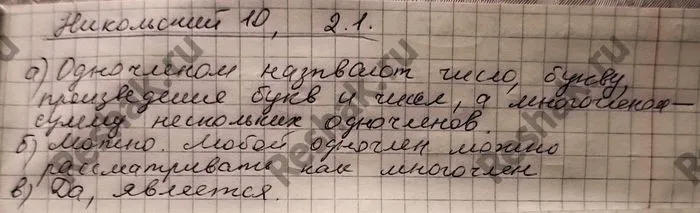 Никольский 10, 2.1.
а) Одночленом называют число, букву,
произведение букв и чисел, а многочленом –
сумму нескольких одночленов.
б) Можно. Любой одночлен можно
рассматривать как многочлен
в) Да, является.
Reshak.ru
Reshak.ru
Reshak.ru